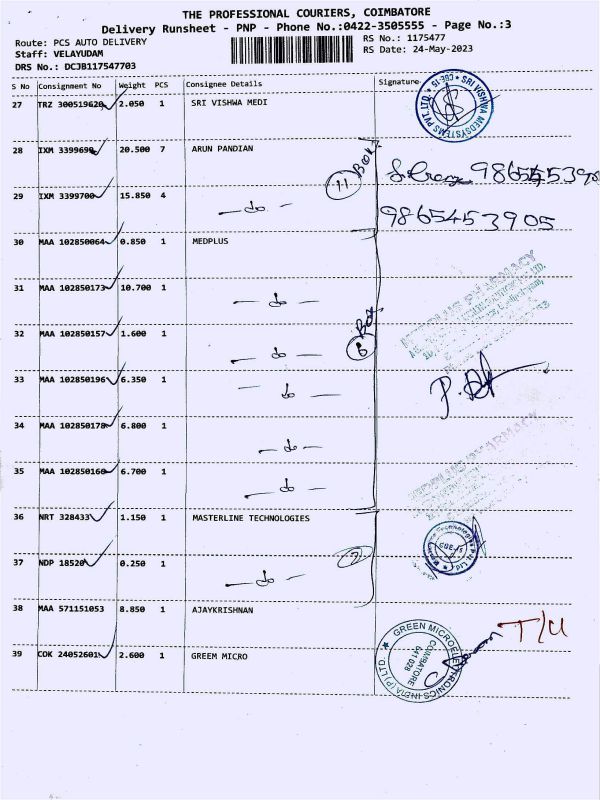 THE PROFESSIONAL COURIERS, COIMBATORE
Delivery Runsheet - PNP - Phone No.:0422-3505555 - Page No.:3
Route: PCS AUTO DELIVERY RS No.: 1175477
Staff: VELAYUDAM RS Date: 24-May-2023
DRS No.: DCJB117547703
S No Consignment No Weight PCS Consignee Details Signature
27 TRZ 300519620 2.050 1 SRI VISHWA MEDI
SRI VISHWA MEDSYSTEMS PVT. LTD. CBE-15
28 IXM 3399699 20.500 7 ARUN PANDIAN
11 Box
29 IXM 3399700 15.850 4 - do -
9865453905
30 MAA 102850064 0.850 1 MEDPLUS
31 MAA 102850173 10.700 1 - do -
MEDPLUS PHARMACY
32 MAA 102850157 1.600 1 - do -
6 Box
33 MAA 102850196 6.350 1 - do -
34 MAA 102850178 6.800 1 - do -
35 MAA 102850160 6.700 1 - do -
MEDPLUS PHARMACY
36 NRT 328433 1.150 1 MASTERLINE TECHNOLOGIES
37 NDP 18520 0.250 1 - do -
2
38 MAA 571151053 8.850 1 AJAYKRISHNAN
T/U
39 COK 24052601 2.600 1 GREEM MICRO
GREEN MICROELECTRONICS INDIA (P) LTD
COIMBATORE
641 028